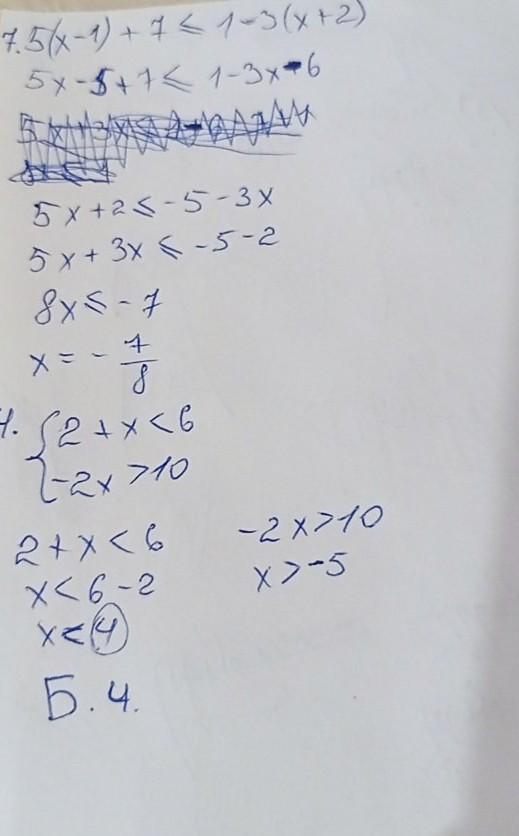 7. 5(x-1)+7 ≤ 1-3(x+2)
5x-5+7 ≤ 1-3x-6
5x+2 ≤ -5-3x
5x+3x ≤ -5-2
8x ≤ -7
x = - 7/8
{ 2+x < 6
-2x > 10
2+x < 6
x < 6-2
x < 4
-2x > 10
x > -5
Б. 4.